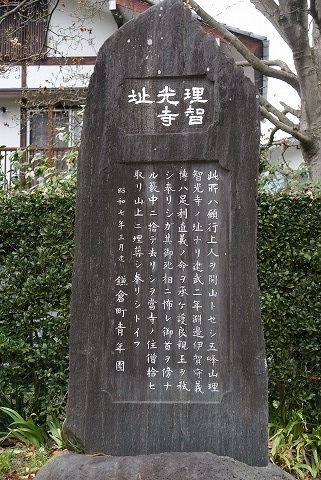 理智光寺址
此所ハ願行上人ヲ開山トセシ五峰山理
智光寺ノ址ナリ建武二年淵邊伊賀守義
博ハ足利直義ノ命ヲ承ケ護良親王ヲ弑
シ奉リシガ其御死相ニ怖レ御首ヲ傍ナ
ル藪中ニ捨テ去リシヲ當寺ノ住僧拾ヒ
取リ山上ニ埋葬シ奉リシトイフ
昭和七年三月建 鎌倉町青年團